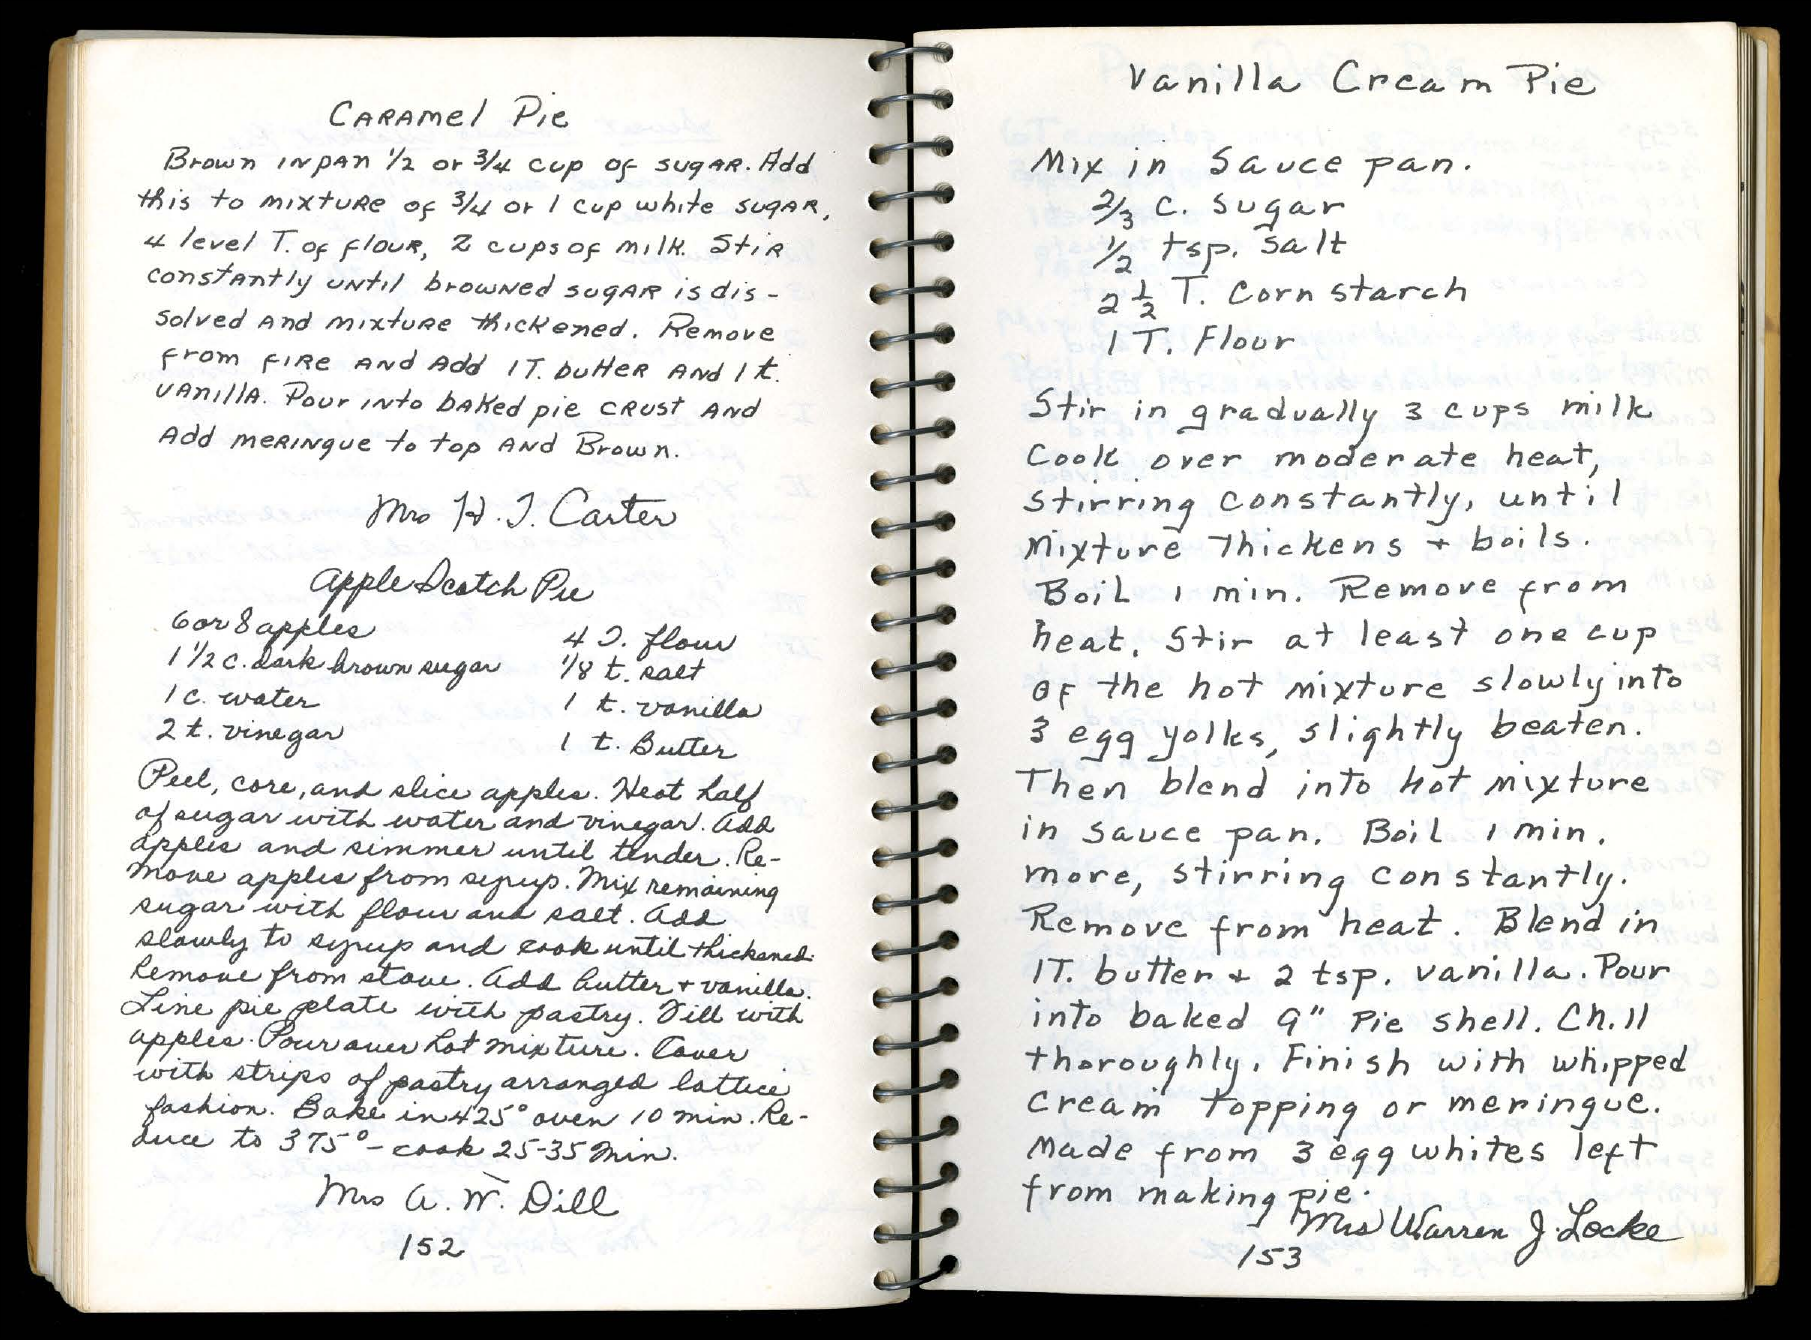 Caramel Pie
Brown in pan 1/2 or 3/4 cup of sugar. Add
this to mixture of 3/4 or 1 cup white sugar,
4 level T. of flour, 2 cups of milk. Stir
constantly until browned sugar is dis-
solved and mixture thickened. Remove
from fire and add 1 T. butter and 1 t.
vanilla. Pour into baked pie crust and
Add meringue to top and Brown.
Mrs H. T. Carter
Apple Scotch Pie
6 or 8 apples
1 1/2 c. dark brown sugar
1 c. water
2 t. vinegar
4 T. flour
1/8 t. salt
1 t. vanilla
1 t. Butter
Peel, core, and slice apples. Heat half
of sugar with water and vinegar. Add
apples and simmer until tender. Re-
move apples from syrup. Mix remaining
sugar with flour and salt. Add
slowly to syrup and cook until thickened.
Remove from stove. Add butter + vanilla.
Line pie plate with pastry. Fill with
apples. Pour over hot mixture. Cover
with strips of pastry arranged lattice
fashion. Bake in 425° oven 10 min. Re-
duce to 375° - cook 25-35 Min.
Mrs A. W. Dill
152
Vanilla Cream Pie
Mix in Sauce pan.
2/3 c. Sugar
1/2 tsp. Salt
2 1/2 T. Corn starch
1 T. Flour
Stir in gradually 3 cups milk
Cook over moderate heat,
stirring constantly, until
Mixture Thickens + boils.
Boil 1 min. Remove from
heat. Stir at least one cup
of the hot mixture slowly into
3 egg yolks, slightly beaten.
Then blend into hot Mixture
in sauce pan. Boil 1 min.
more, stirring constantly.
Remove from heat. Blend in
1T. butter + 2 tsp. vanilla. Pour
into baked 9" Pie shell. Chill
thoroughly. Finish with whipped
cream topping or meringue.
Made from 3 egg whites left
from making pie.
Mrs Warren J. Locke
153